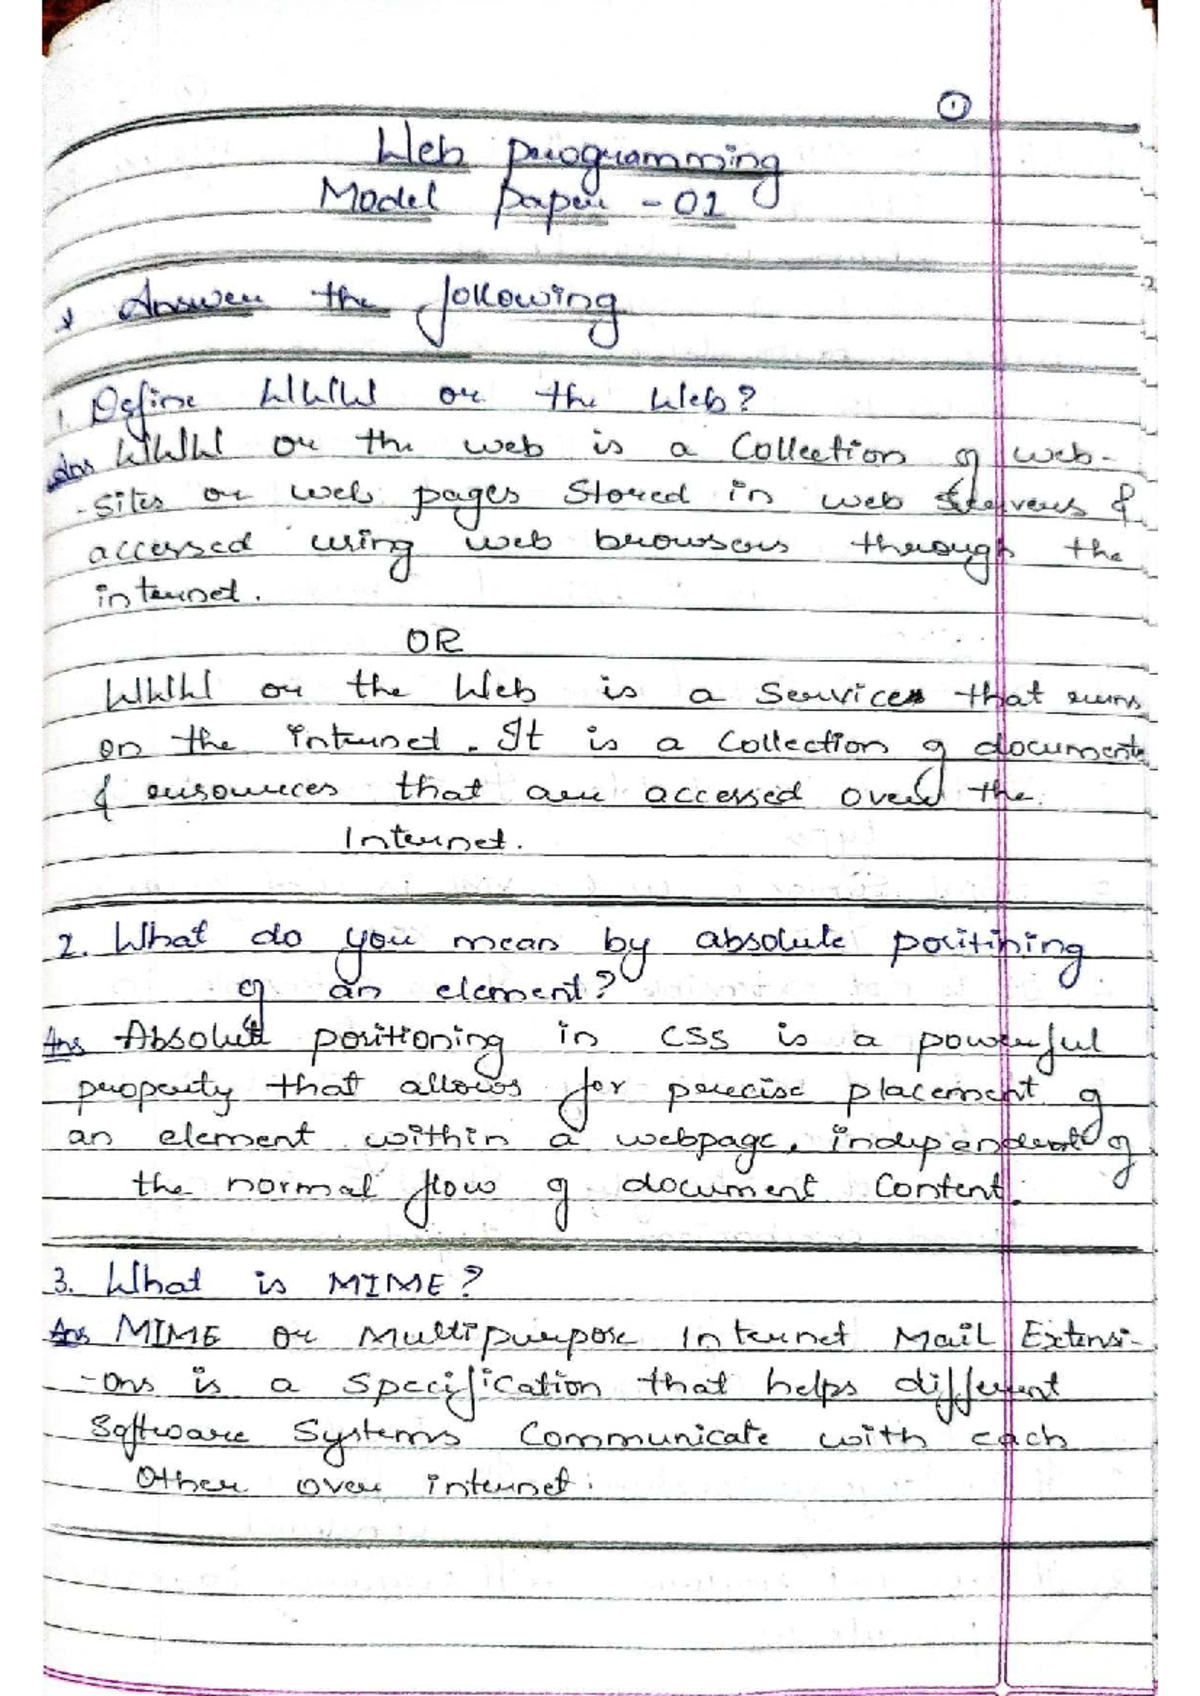 1
Web programming
Model paper - 01
* Answer the following
1. Define WWW or the Web?
Ans WWW or the web is a Collection of web-
-sites or web pages Stored in web servers &
accessed using web browsers through the
internet.
OR
WWW or the Web is a Service that runs
on the internet. It is a Collection of documents
& resources that are accessed over the
Internet.
2. What do you mean by absolute positining
of an element?
Ans Absolute positioning in CSS is a powerful
property that allows for precise placement of
an element within a webpage, independent of
the normal flow of document Content.
3. What is MIME?
Ans MIME or Multipurpose Internet Mail Extensi-
-ons is a specification that helps different
Software Systems Communicate with each
Other over internet.